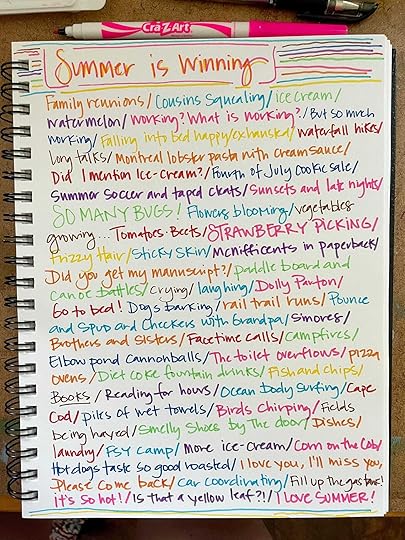 Cra-Z-Art
Summer is Winning
Family reunions/Cousins Squealing/ice cream/
watermelon/Working? What is working?/But so much
working/Falling into bed happy/exhausted/waterfall hikes/
Long talks/Montreal lobster pasta with cream sauce/
Did I mention Ice-cream?/Fourth of July Cookie sale/
Summer Soccer and taped cleats/Sunsets and late nights/
SO MANY BUGS! Flowers blooming/vegetables
growing... Tomatoes. Beets/STRAWBERRY PICKING/
Frizzy Hair/Sticky Skin/Mcnifficents in paperback/
Did you get my manuscript?/Paddle board and
canoe battles/crying/laughing/Dolly Parton/
Go to bed!/Dogs barking/rail trail runs/Pounce
and Spud and Checkers with Grandpa/Smores/
Brothers and Sisters/Facetime calls/campfires/
Elbow pond cannonballs/The toilet overflows/pizza
ovens/Diet coke fountain drinks/Fish and chips/
Books/Reading for hours/Ocean Body Surfing/Cape
Cod/piles of wet towels/Birds Chirping/Fields
being hayed/Smelly Shoes by the door/Dishes/
laundry/FSY camp/More ice-cream/Corn on the Cob/
Hotdogs taste so good roasted/I love you, I'll miss you,
Please come back/car coordinating/Fill up the gas tank!
It's so hot!/Is that a yellow leaf?!/I LOVE SUMMER!